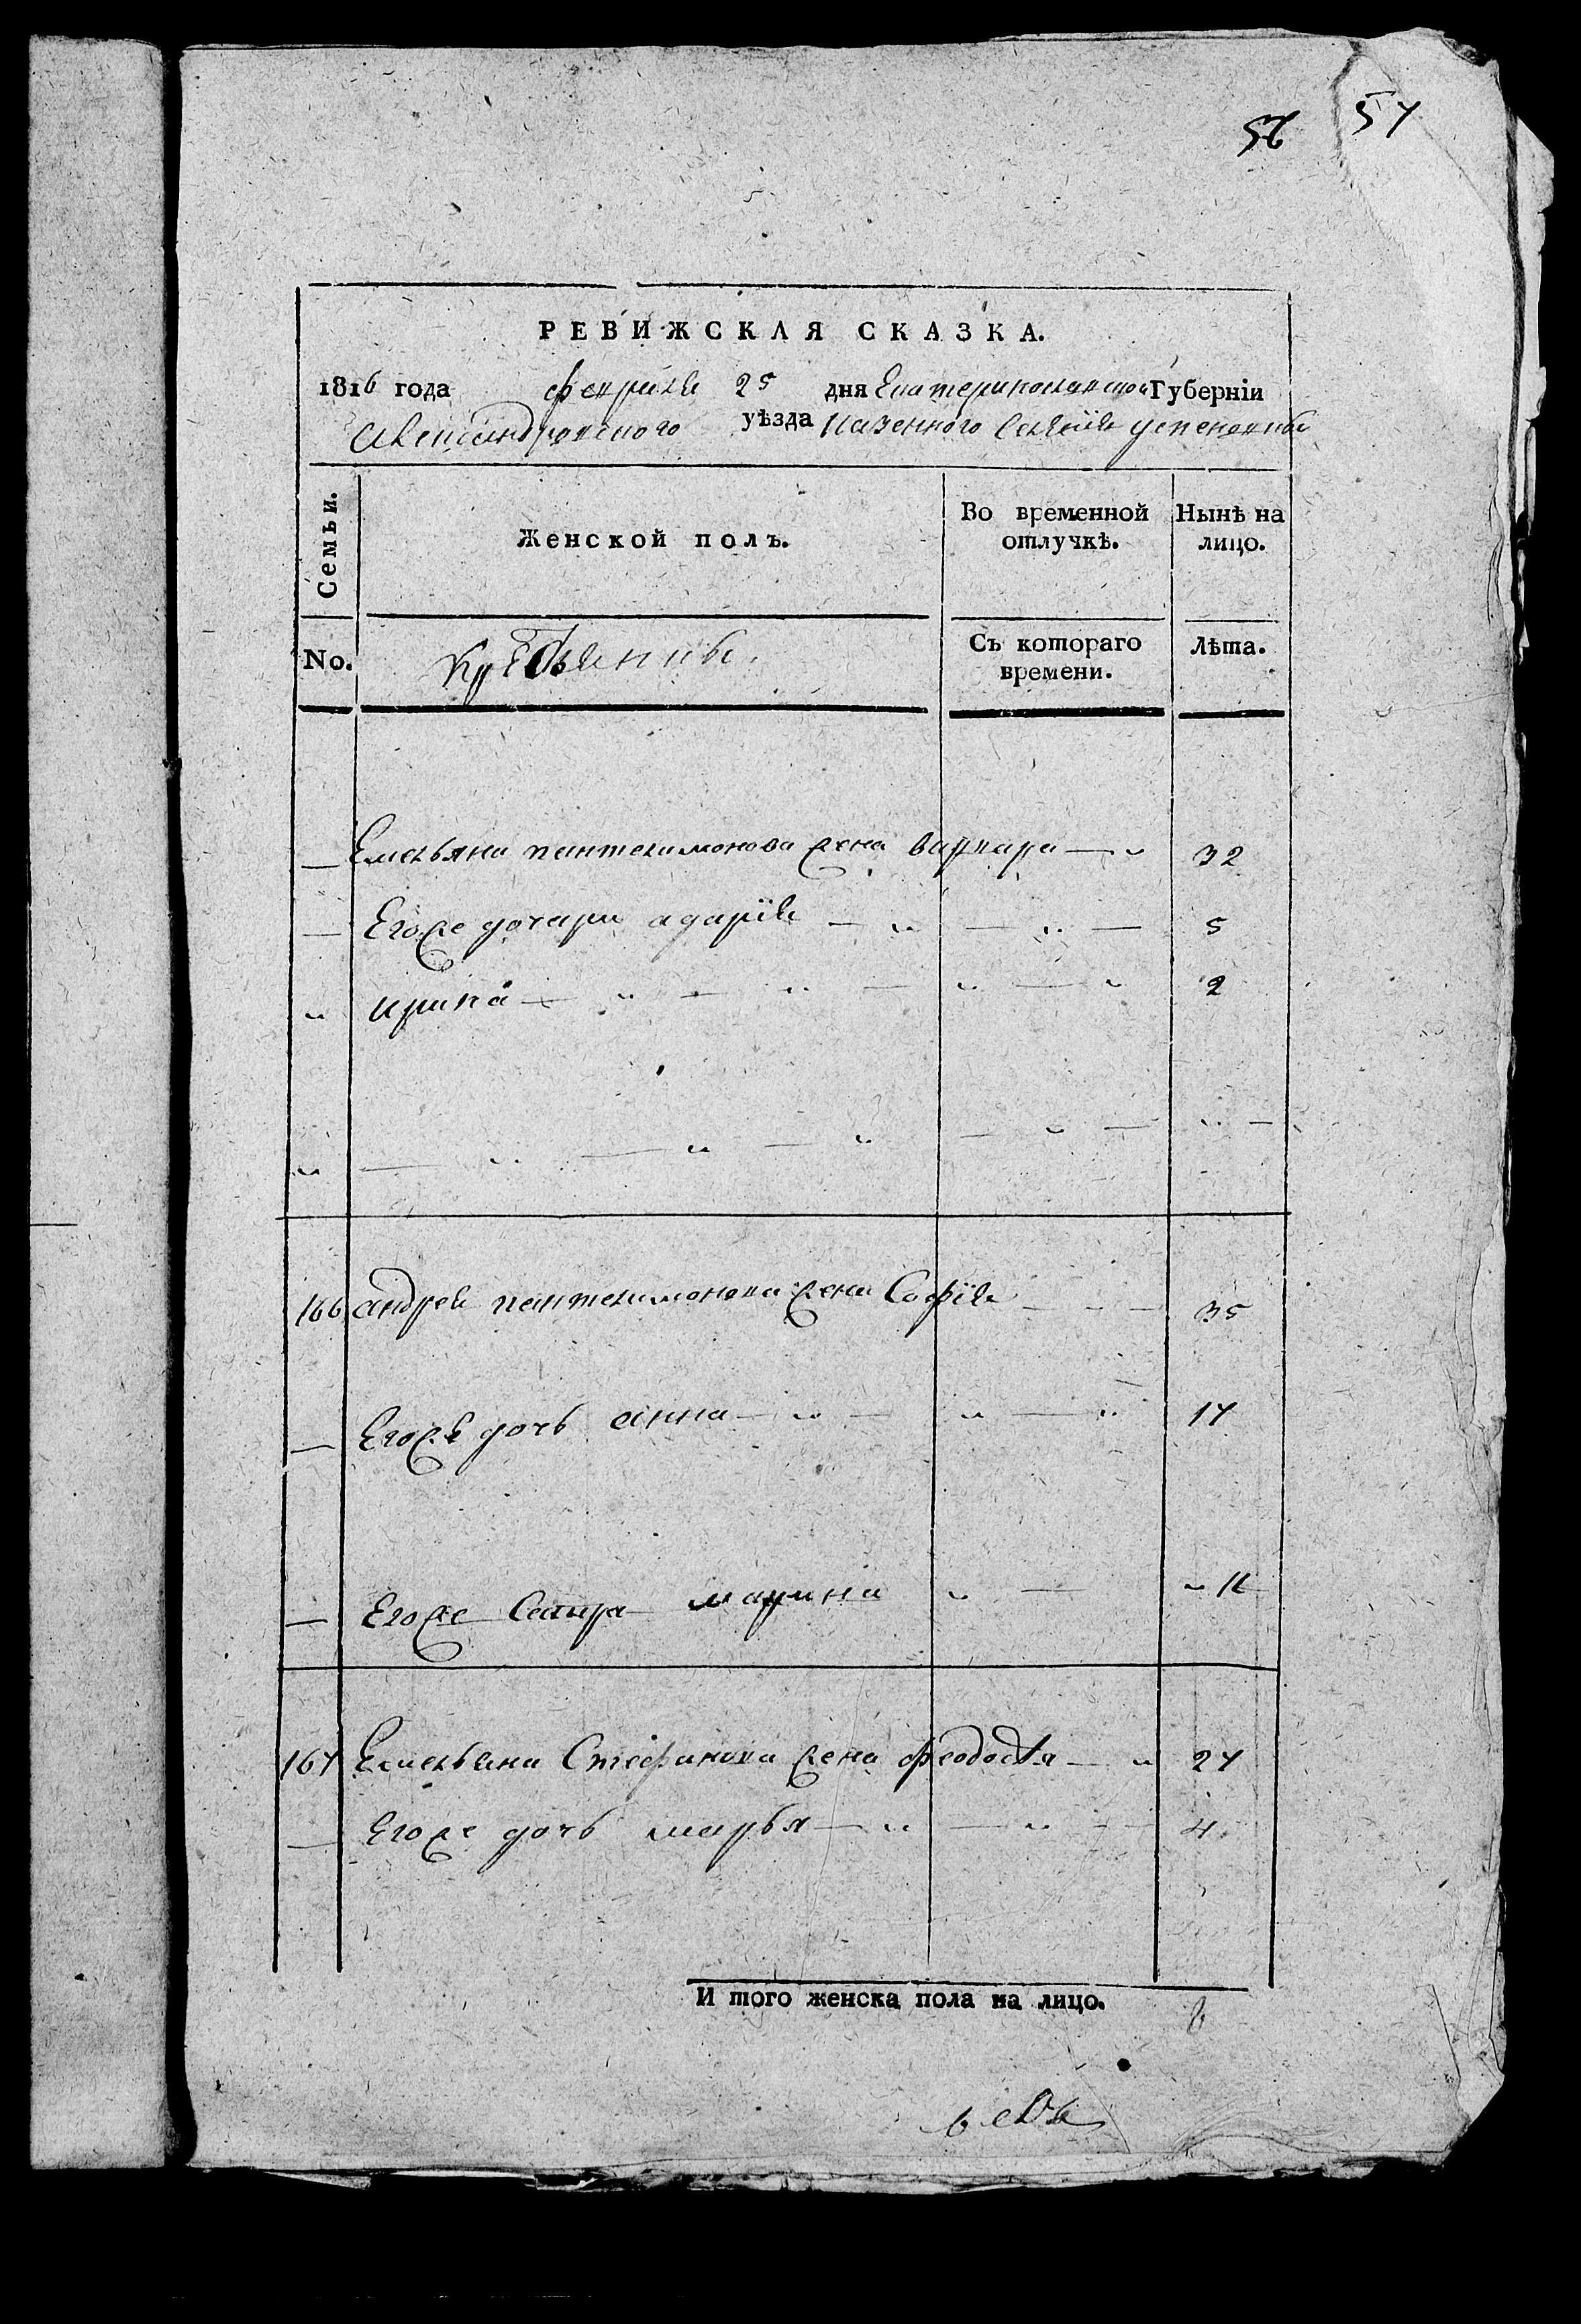 56 57
РЕВИЖСКАЯ СКАЗКА.
1816 года февраля 25 дня Екатеринославской Губерніи
Александровского уѣзда казенного селения
Семьи.
Женской полъ.
Во временной отлучкѣ.
Нынѣ на лицо.
No.
Съ котораго времени.
Лѣта.
— Емельяна пантелимонова жена варвара — 32
— Егоже дочери адарія — 5
ирина — 2
166 андрея пантелимонова жена Софія — 35
— Егоже дочь анна — 17
— Егоже Сестра марина —
167 Емельяна Стефанова жена феодосія — 27
— Егоже дочь марья — 4
И того женска пола на лицо.